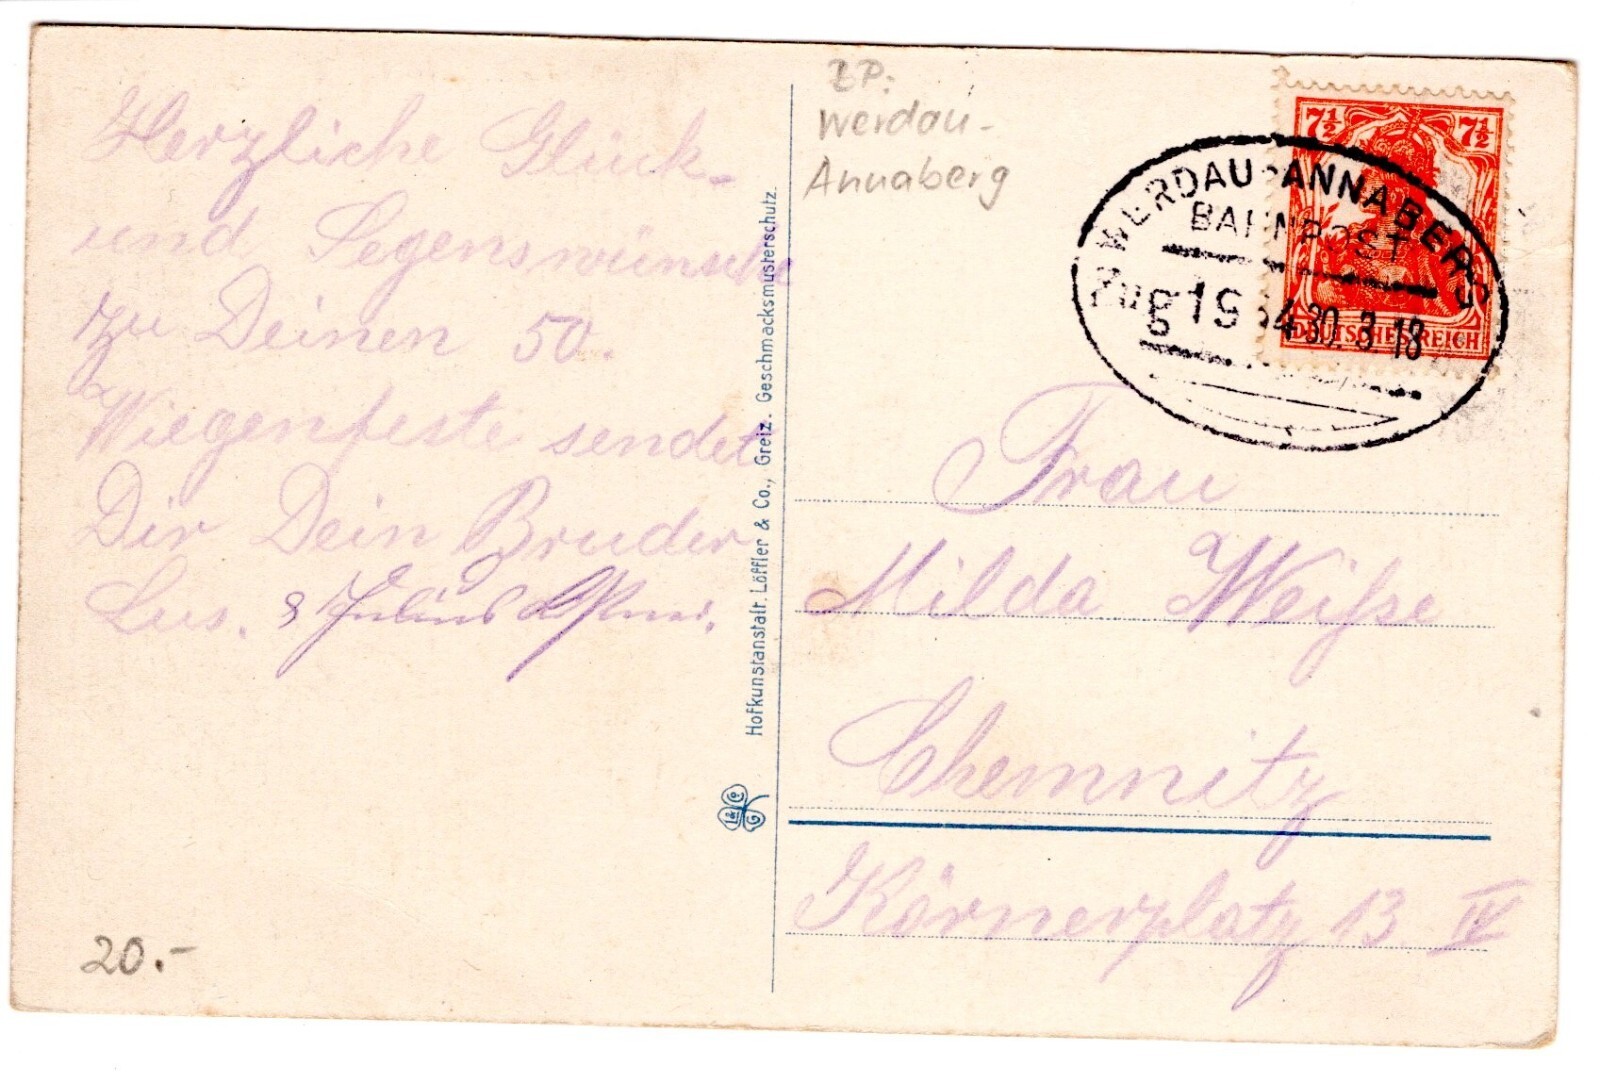 Herzliche Glück-
und Segenswünsche
zu Deinen 50.
Wiegenfeste sendet
Dir Dein Bruder
Gus. & Julius
20.-
Hofkunstanstalt. Löffler & Co., Greiz. Geschmacksmusterschutz.
BP:
Werdau-
Annaberg
7½ 7½
DEUTSCHES REICH
WERDAU-ANNABERG
BAHNPOST
Zug 19 30.3.18
Frau
Milda Weiſse
Chemnitz
Körnerplatz 13. IV